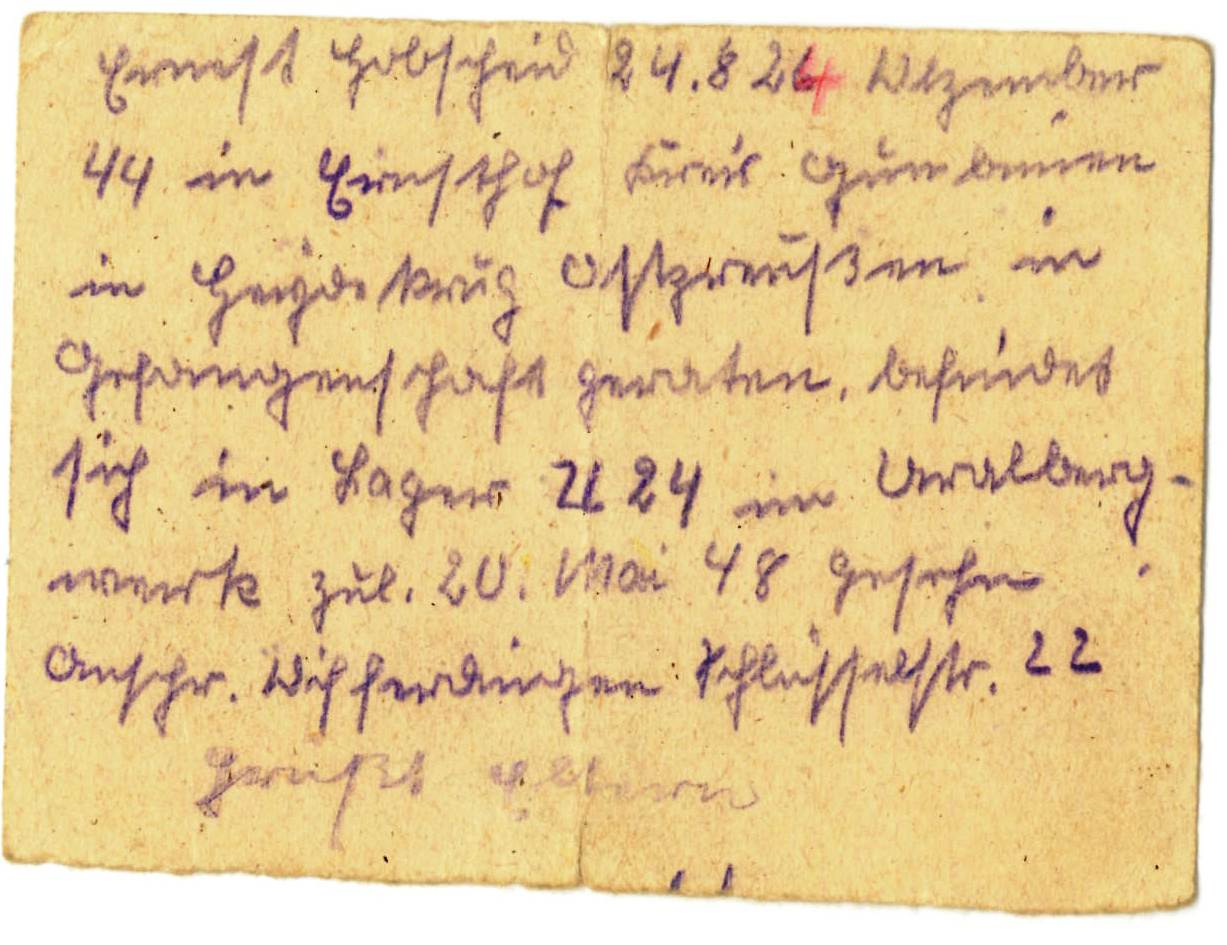 Ernst Hobscheid 24.8 24 Dezember
44 in Ernsthof Kreis Gumbinnen
in Heydekrug Ostpreußen in
Gefangenschaft geraten, befindet
sich in Lager 24 im Uralberg-
werk zul. 20. Mai 48 gesehn
Anschr. Differdingen Schlüsselstr. 22
grüßt Eltern